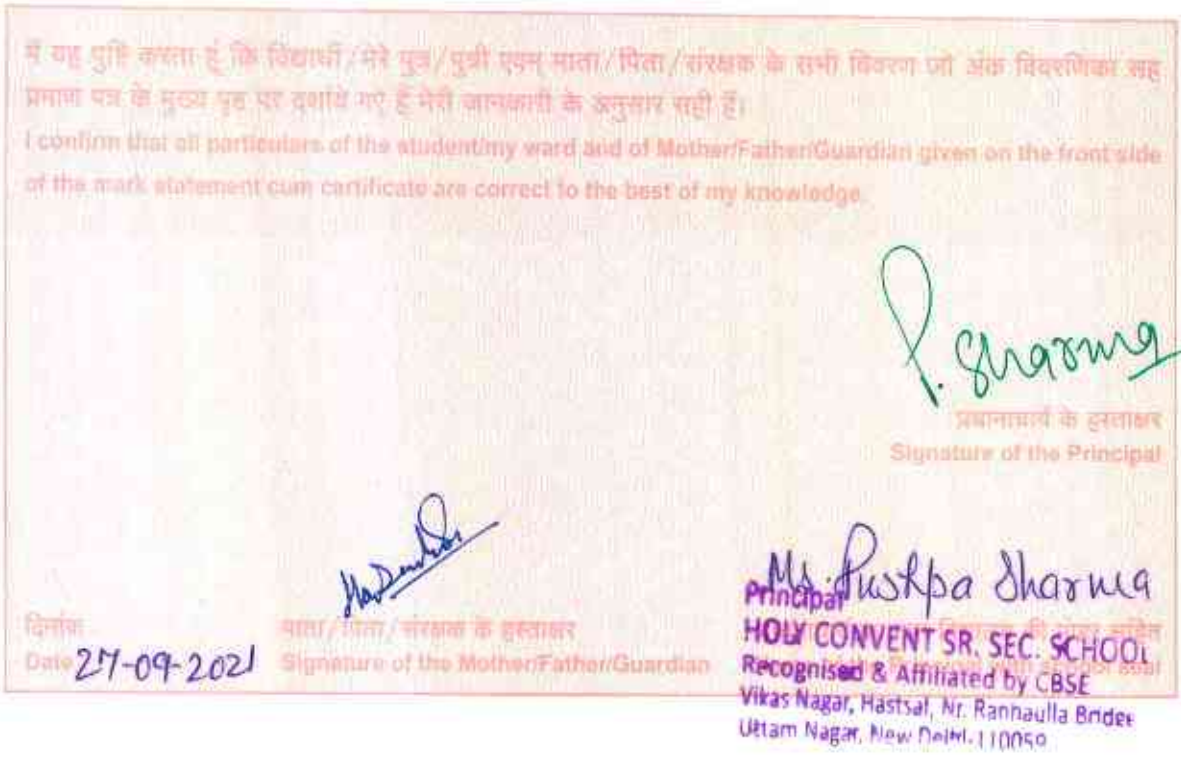 मैं यह पुष्टि करता हूं कि विद्यार्थी/मेरे पुत्र/पुत्री एवम् माता/पिता/संरक्षक के सभी विवरण जो अंक विवरणिका सह
प्रमाण पत्र के मुख्य पृष्ठ पर दर्शाये गए हैं मेरी जानकारी के अनुसार सही हैं।
I confirm that all particulars of the student/my ward and of Mother/Father/Guardian given on the front side
of the mark statement cum certificate are correct to the best of my knowledge.
P. Sharma
प्रधानाचार्य के हस्ताक्षर
Signature of the Principal
Ms. Pushpa Sharma
Principal
दिनांक
माता/पिता/संरक्षक के हस्ताक्षर
HOLY CONVENT SR. SEC. SCHOOL
Date 27-09-2021
Signature of the Mother/Father/Guardian
Recognised & Affiliated by CBSE
Vikas Nagar, Hastsal, Nr. Ranhaulla Bridge
Uttam Nagar, New Delhi-110059